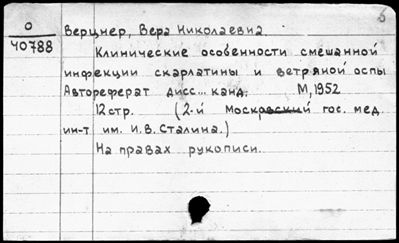 О
40788
Верцнер, Вера Николаевна.
Клинические особенности смешанной
инфекции скарлатины и ветряной оспы
Автореферат дисс... канд. М, 1952
12 стр. (2-й Московский гос. мед.
ин-т им. И.В. Сталина.)
На правах рукописи.